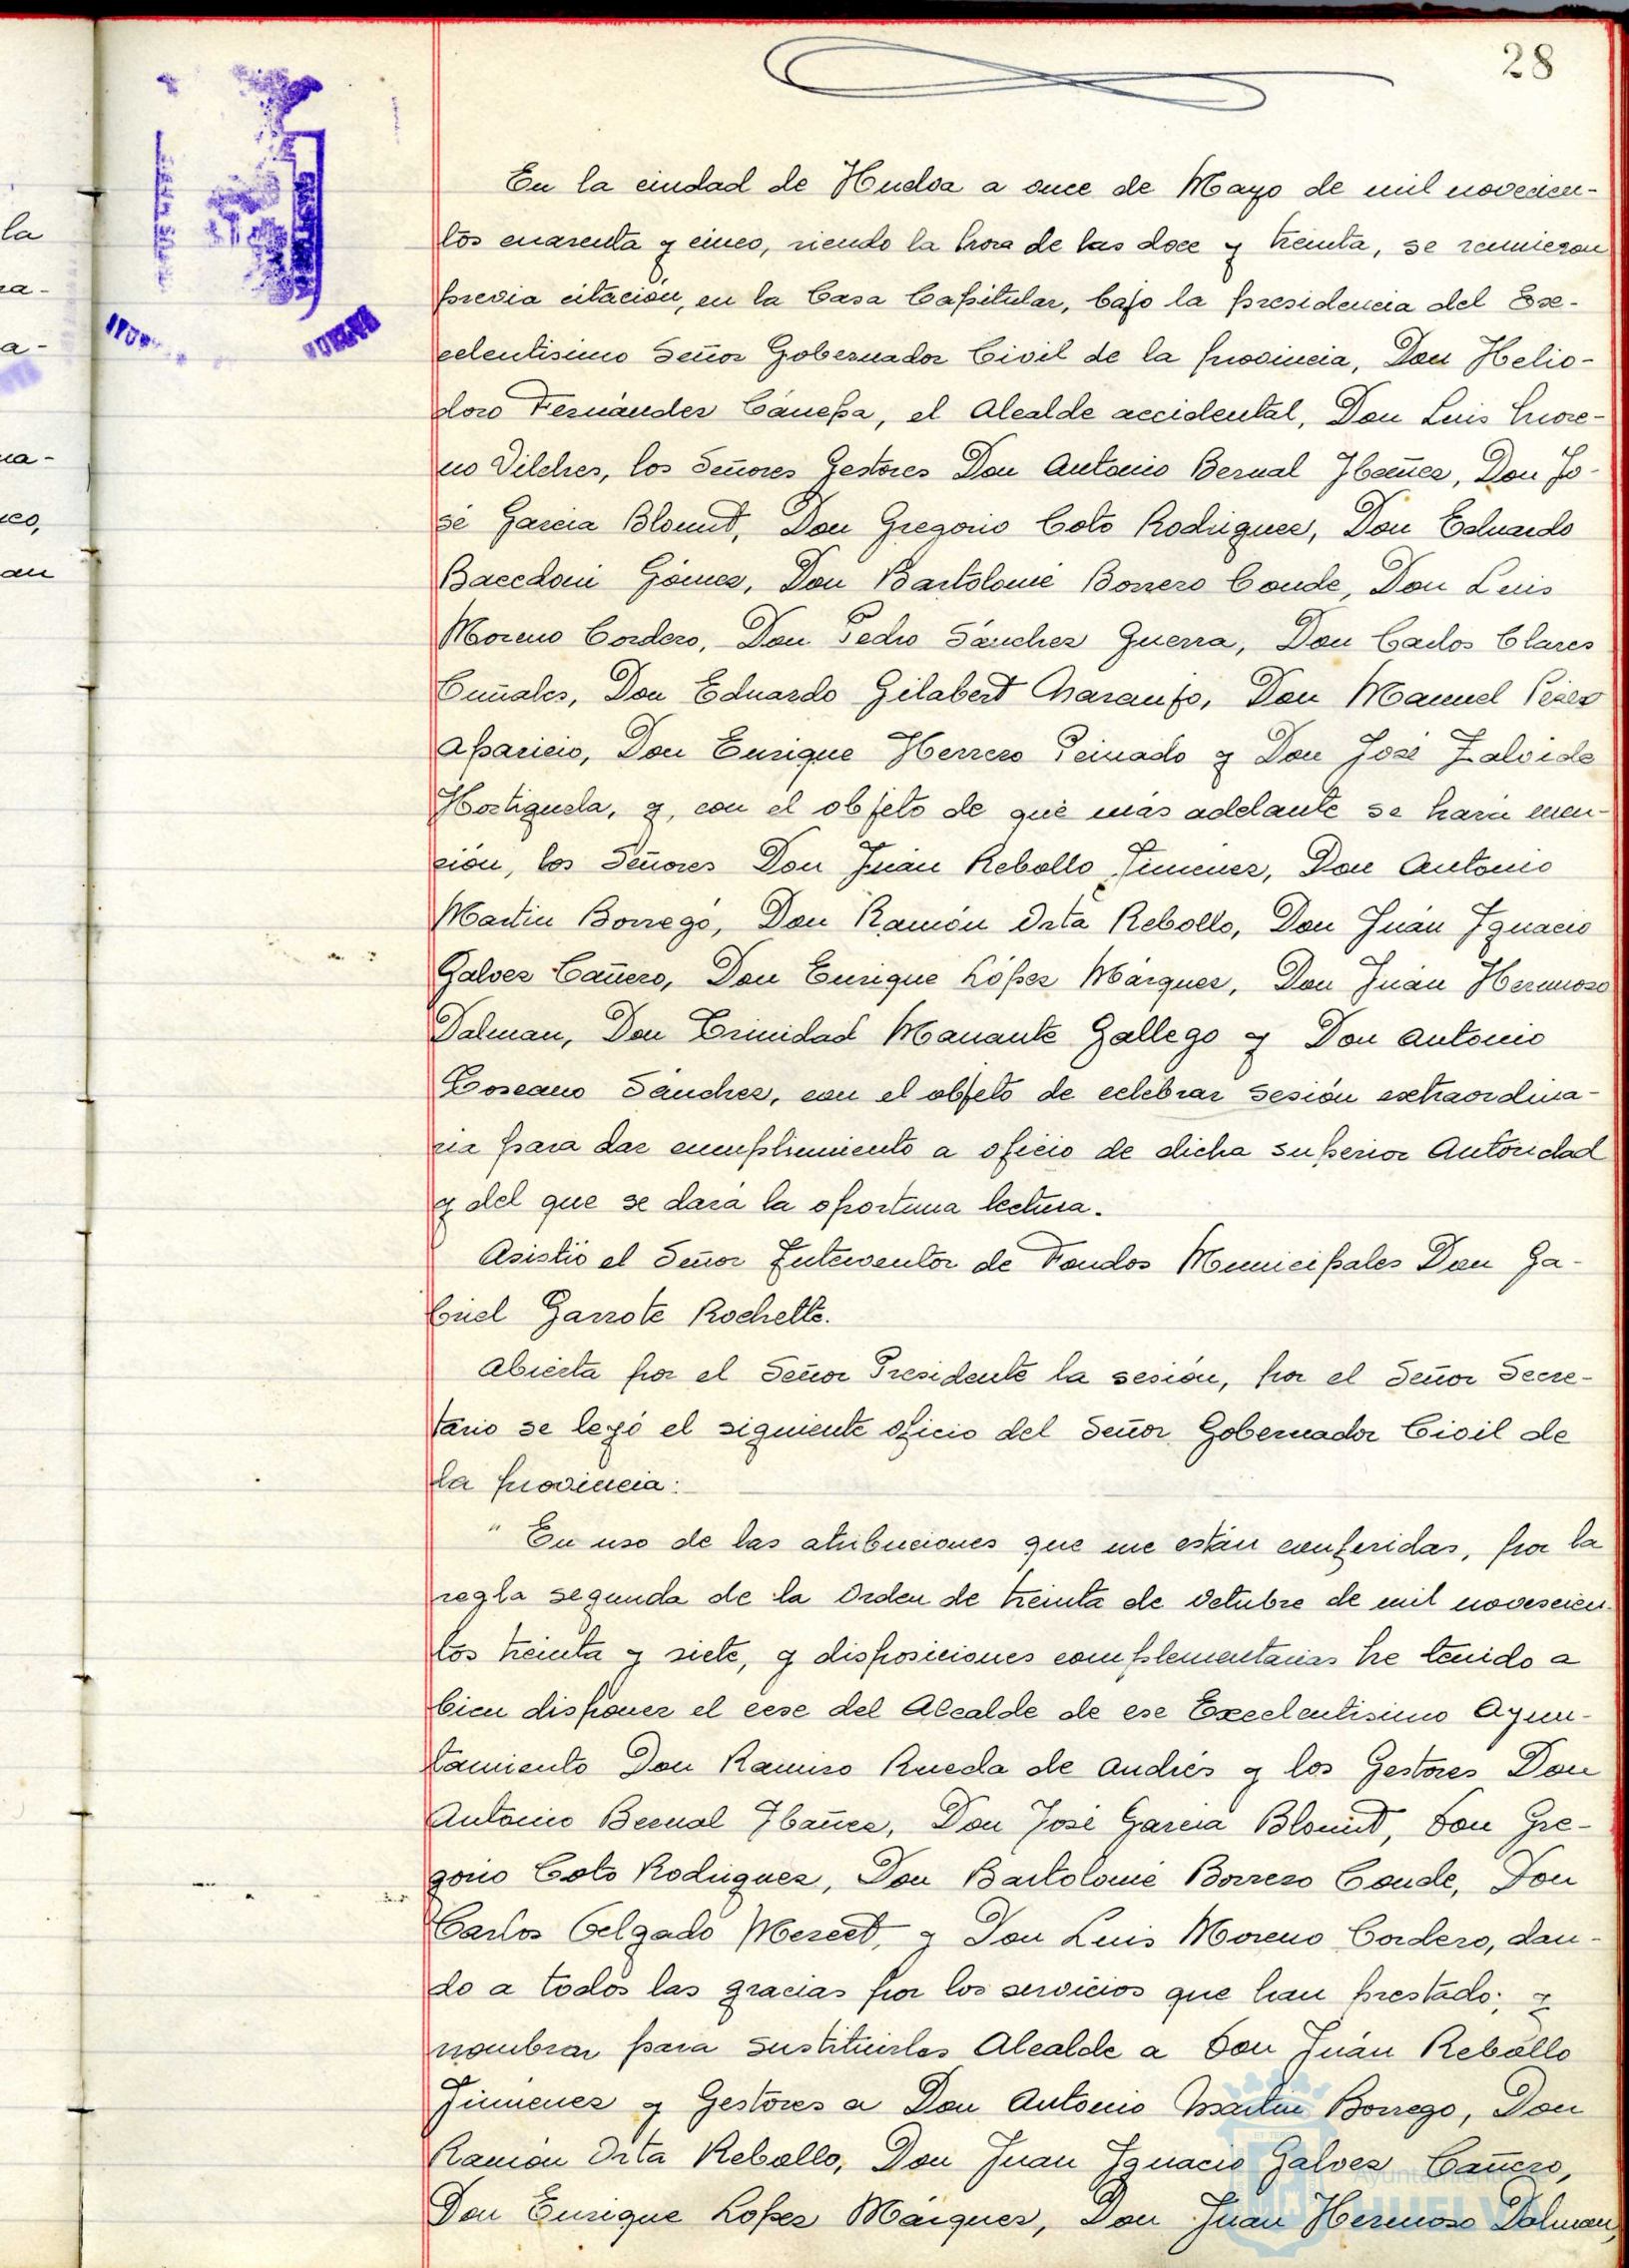 28
En la ciudad de Huelva a once de Mayo de mil novecien-
tos cuarenta y cinco, siendo la hora de las doce y treinta, se reunieron
previa citación, en la Casa Capitular, bajo la presidencia del Exc-
celentisimo Señor Gobernador Civil de la provincia, Don Helio-
doro Fernández Cánepa, el Alcalde accidental, Don Luis More-
no Vilches, los Señores Gestores Don Antonio Bernal Ibañez, Don Jo-
sé Garcia Blount, Don Gregorio Coto Rodriguez, Don Eduardo
Baccdoni Gómez, Don Bartolomé Borrero Conde, Don Luis
Moreno Cordero, Don Pedro Sánchez Guerra, Don Carlos Clares
Cuñales, Don Eduardo Gilabert Naranjo, Don Manuel Pérez
Aparicio, Don Enrique Herrero Peinado y Don José Zalvide
Hortiguela, y, con el objeto de qué más adelante se hará men-
ción, los Señores Don Juán Rebollo Jimenez, Don Antonio
Martin Borrego, Don Ramón Orta Rebollo, Don Juán Ignacio
Galvez Cañero, Don Enrique López Márquez, Don Juán Hermoso
Dalman, Don Trinidad Manante Gallego y Don Antonio
Toscano Sánchez, con el objeto de celebrar sesión extraordina-
ria para dar cumplimiento a oficio de dicha superior Autoridad
y del que se dará la oportuna lectura.
Asistió el Señor Interventor de Fondos Municipales Don Ga-
briel Garrote Rochelte.
Abierta por el Señor Presidente la sesión, por el Señor Secre-
tario se leyó el siguiente oficio del Señor Gobernador Civil de
la provincia:
" En uso de las atribuciones que me están conferidas, por la
regla segunda de la Orden de treinta de Octubre de mil novescien-
tos treinta y siete, y disposiciones complementarias he tenido a
bien disponer el cese del Alcalde de ese Excelentisimo Ayun-
tamiento Don Ramiro Rueda de Andrés y los Gestores Don
Antonio Bernal Ibañez, Don José Garcia Blount, Don Gre-
gorio Coto Rodriguez, Don Bartolomé Borrero Conde, Don
Carlos Delgado Mercet, y Don Luis Moreno Cordero, dan-
do a todos las gracias por los servicios que han prestado; y
nombrar para sustituirles Alcalde a Don Juán Rebollo
Jimenez y Gestores a Don Antonio Martin Borrego, Don
Ramón Orta Rebollo, Don Juan Ignacio Galvez Cañero,
Don Enrique Lopez Márquez, Don Juan Hermoso Dalman,
la
ra-
a-
na-
an
HUELVA